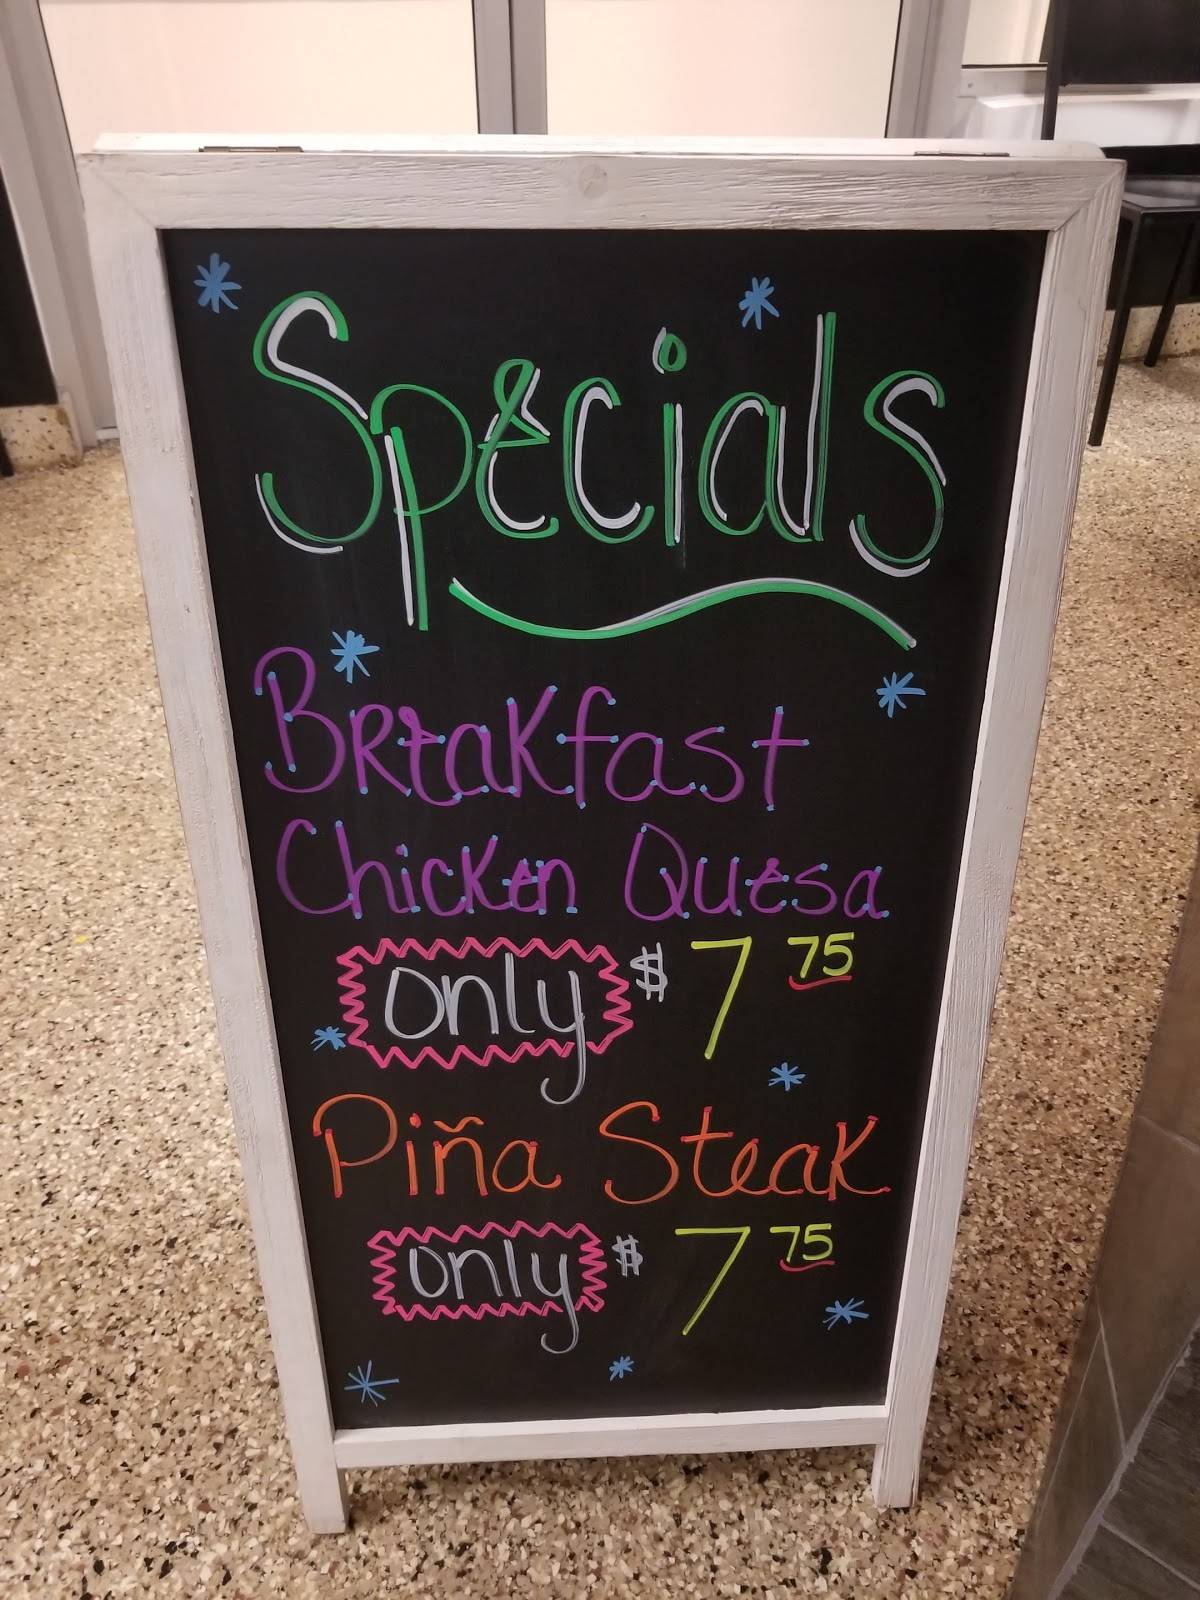 Specials
Breakfast
Chicken Quesa
only $7 75
Piña Steak
only $7 75